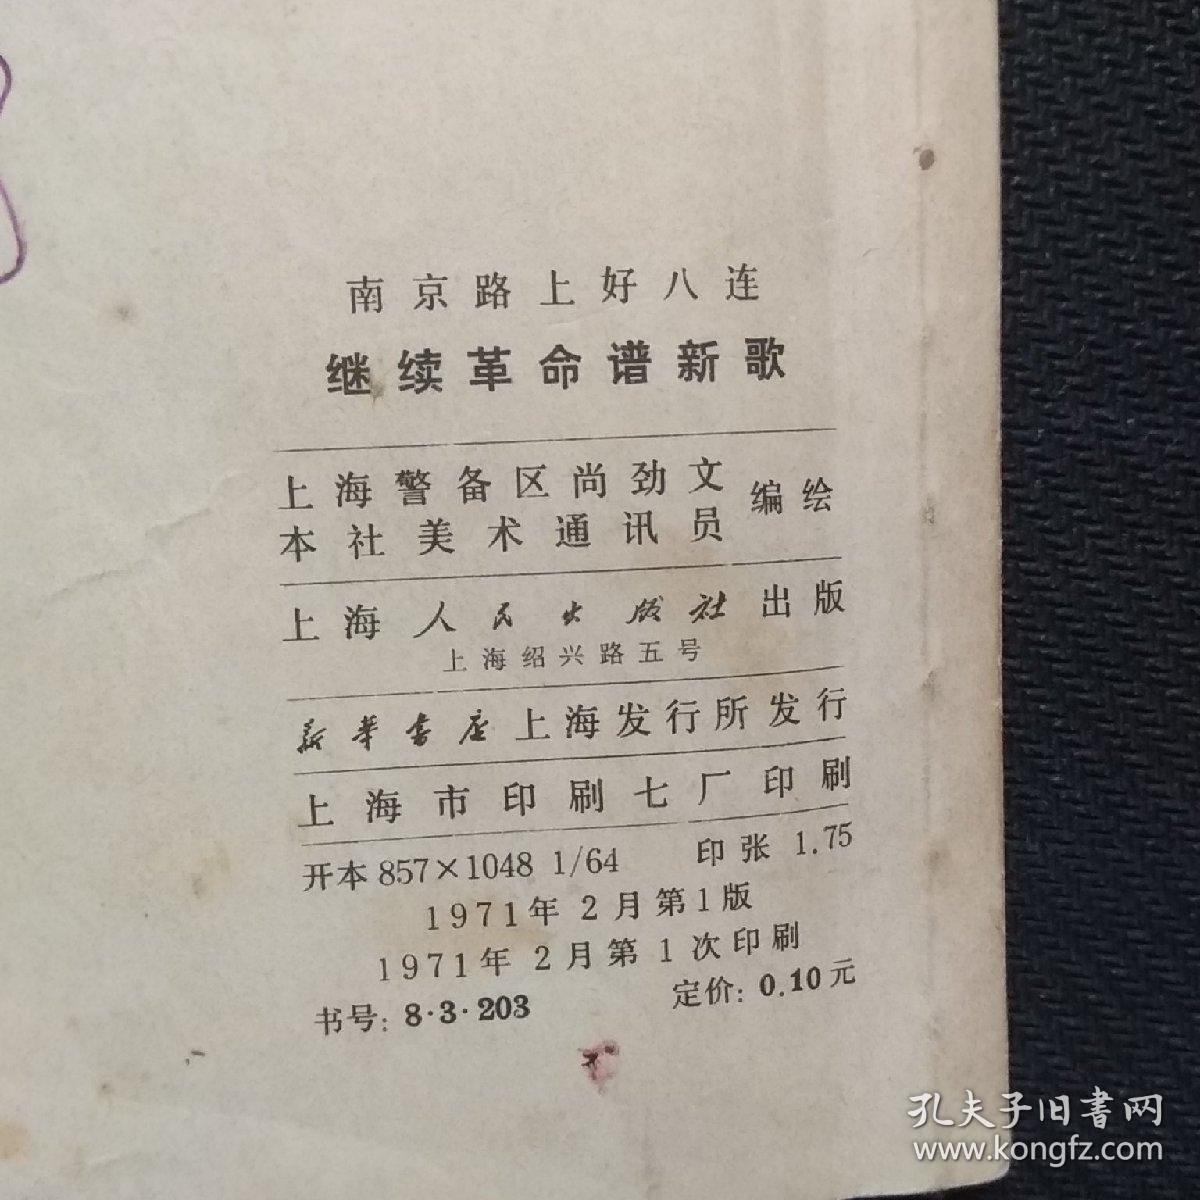 南京路上好八连
继续革命谱新歌
上海警备区尚劲文
本社美术通讯员
编绘
上海人民出版社出版
上海绍兴路五号
新华书店上海发行所发行
上海市印刷七厂印刷
开本 857×1048 1/64 印张 1.75
1971年2月第1版
1971年2月第1次印刷
书号: 8·3·203 定价: 0.10元
孔夫子旧书网
www.kongfz.com